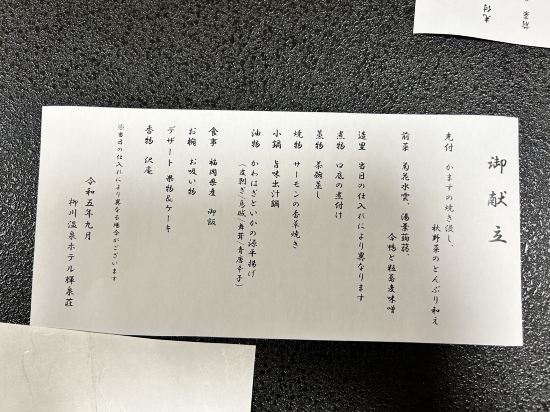 御献立
先付　かますの焼き浸し、
秋野菜のどんぶり和え
前菜　菊花水雲、湯葉蒟蒻、
合鴨と粒蕎麦味噌
造里　当日の仕入れにより異なります
煮物　口底の煮付け
蒸物　茶碗蒸し
焼物　サーモンの香草焼き
小鍋　旨味出汁鍋
油物　かわはぎといかの源平揚げ
(皮剥ぎ/烏賊/舞茸/青唐辛子)
食事　福岡県産　御飯
お椀　お吸い物
デザート　果物&ケーキ
香物　沢庵
※当日の仕入れにより異なる場合がございます
令和五年九月
柳川温泉ホテル輝泉荘
先付
前菜